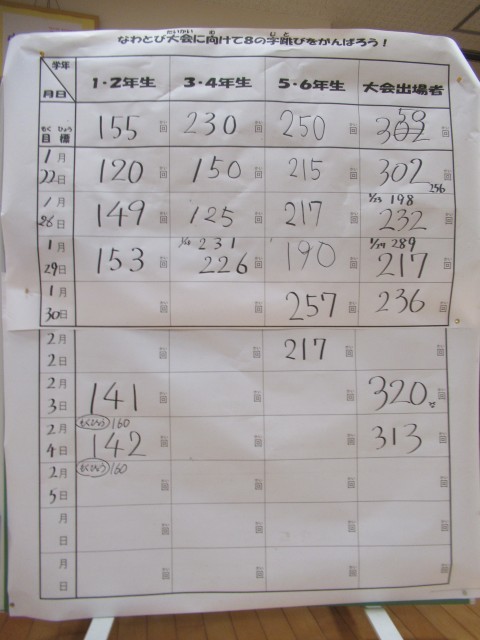 なわとび大会に向けて8の字跳びをがんばろう！
学年 月日 1・2年生 3・4年生 5・6年生 大会出場者
目標 155回 230回 250回 350回
1月22日 120回 150回 215回 302回 256
1月26日 149回 125回 217回 1/23 198 232回
1月29日 153回 231 226回 190回 1/29 289 217回
1月30日 回 回 257回 236回
2月2日 回 回 217回 回
2月3日 141回 回 回 320回
もくひょう 160
2月4日 142回 回 回 313回
もくひょう 160
2月5日 回 回 回 回
月日 回 回 回 回
月日 回 回 回 回